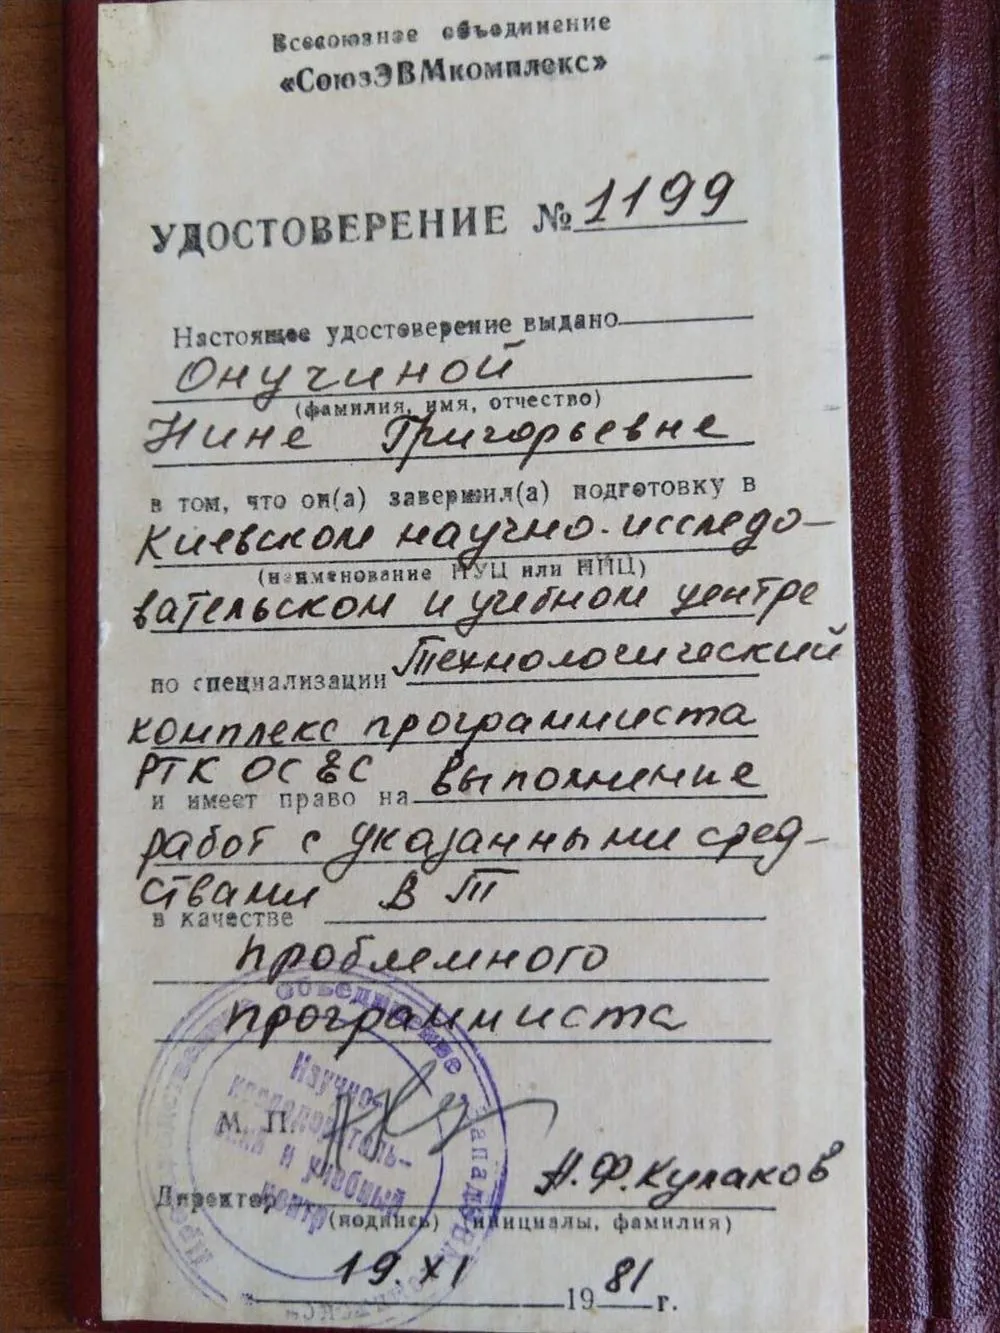 Всесоюзное объединение
«СоюзЭВМкомплекс»
УДОСТОВЕРЕНИЕ № 1199
Настоящее удостоверение выдано
Онучиной
(фамилия, имя, отчество)
Нине Григорьевне
в том, что он(а) завершил(а) подготовку в
Киевском научно-исследо-
(наименование НУЦ или НИЦ)
вательском и учебном центре
по специализации Технологический
комплекс программиста
РТК ОС ЕС
и имеет право на выполнение
работ с указанными сред-
ствами ВТ
в качестве
проблемного
программиста
объединение
Западэвм
Научно-
исследователь-
ский и учебный
центр
М. П.
Директор Н.Ф.Кулаков
(подпись) (инициалы, фамилия)
19.XI 1981 г.